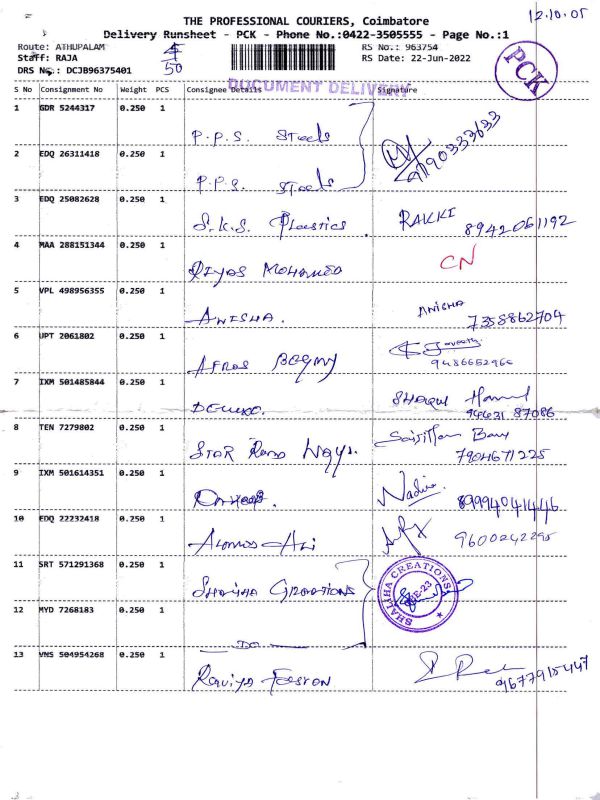 12.10.05
THE PROFESSIONAL COURIERS, Coimbatore
Delivery Runsheet - PCK - Phone No.:0422-3505555 - Page No.:1
Route: ATHUPALAM
RS No.: 963754
Staff: RAJA
50
RS Date: 22-Jun-2022
PCK
DRS No.: DCJB96375401
DOCUMENT DELIVERY
S No Consignment No Weight PCS Consignee Details Signature
1 GDR 5244317 0.250 1 P.P.S. Steels 9790333633
2 EDQ 26311418 0.250 1 P.P.S. Steels
3 EDQ 25082628 0.250 1 S.K.S. Plastics. RAKKI 8942061192
4 MAA 288151344 0.250 1 RIYAS MOHAMED CN
5 VPL 498956355 0.250 1 ANISHA. ANISHA 7358862704
6 UPT 2061802 0.250 1 AFROS
7 IXM 501485844 0.250 1 94431 87086
8 TEN 7279802 0.250 1 STAR 7904671225
9 IXM 501614351 0.250 1 Nadira
10 EDQ 22232418 0.250 1 ALI 9600242295
11 SRT 571291368 0.250 1 SHALIHA CREATIONS SHALIHA CREATIONS
12 MYD 7268183 0.250 1 DO
13 VNS 504954268 0.250 1 9677915447